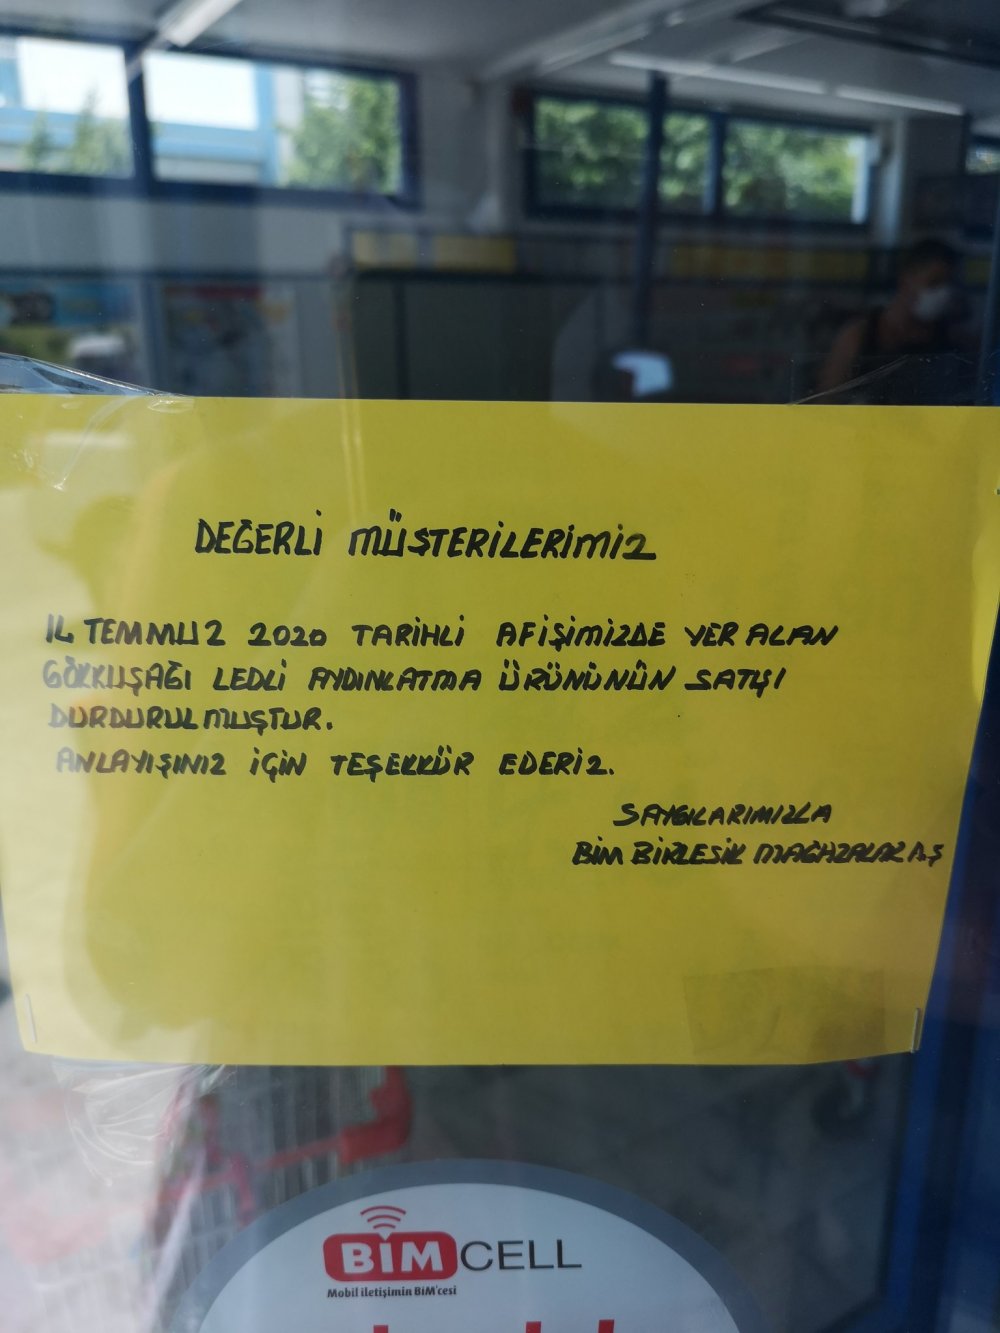 DEĞERLİ MÜŞTERİLERİMİZ
14 TEMMUZ 2020 TARİHLİ AFİŞİMİZDE YER ALAN
GÖKKUŞAĞI LEDLİ AYDINLATMA ÜRÜNÜNÜN SATIŞI
DURDURULMUŞTUR.
ANLAYIŞINIZ İÇİN TEŞEKKÜR EDERİZ.
SAYGILARIMIZLA
BİM BİRLEŞİK MAĞAZALAR A.Ş
BİM CELL
Mobil iletişimin BİM'cesi